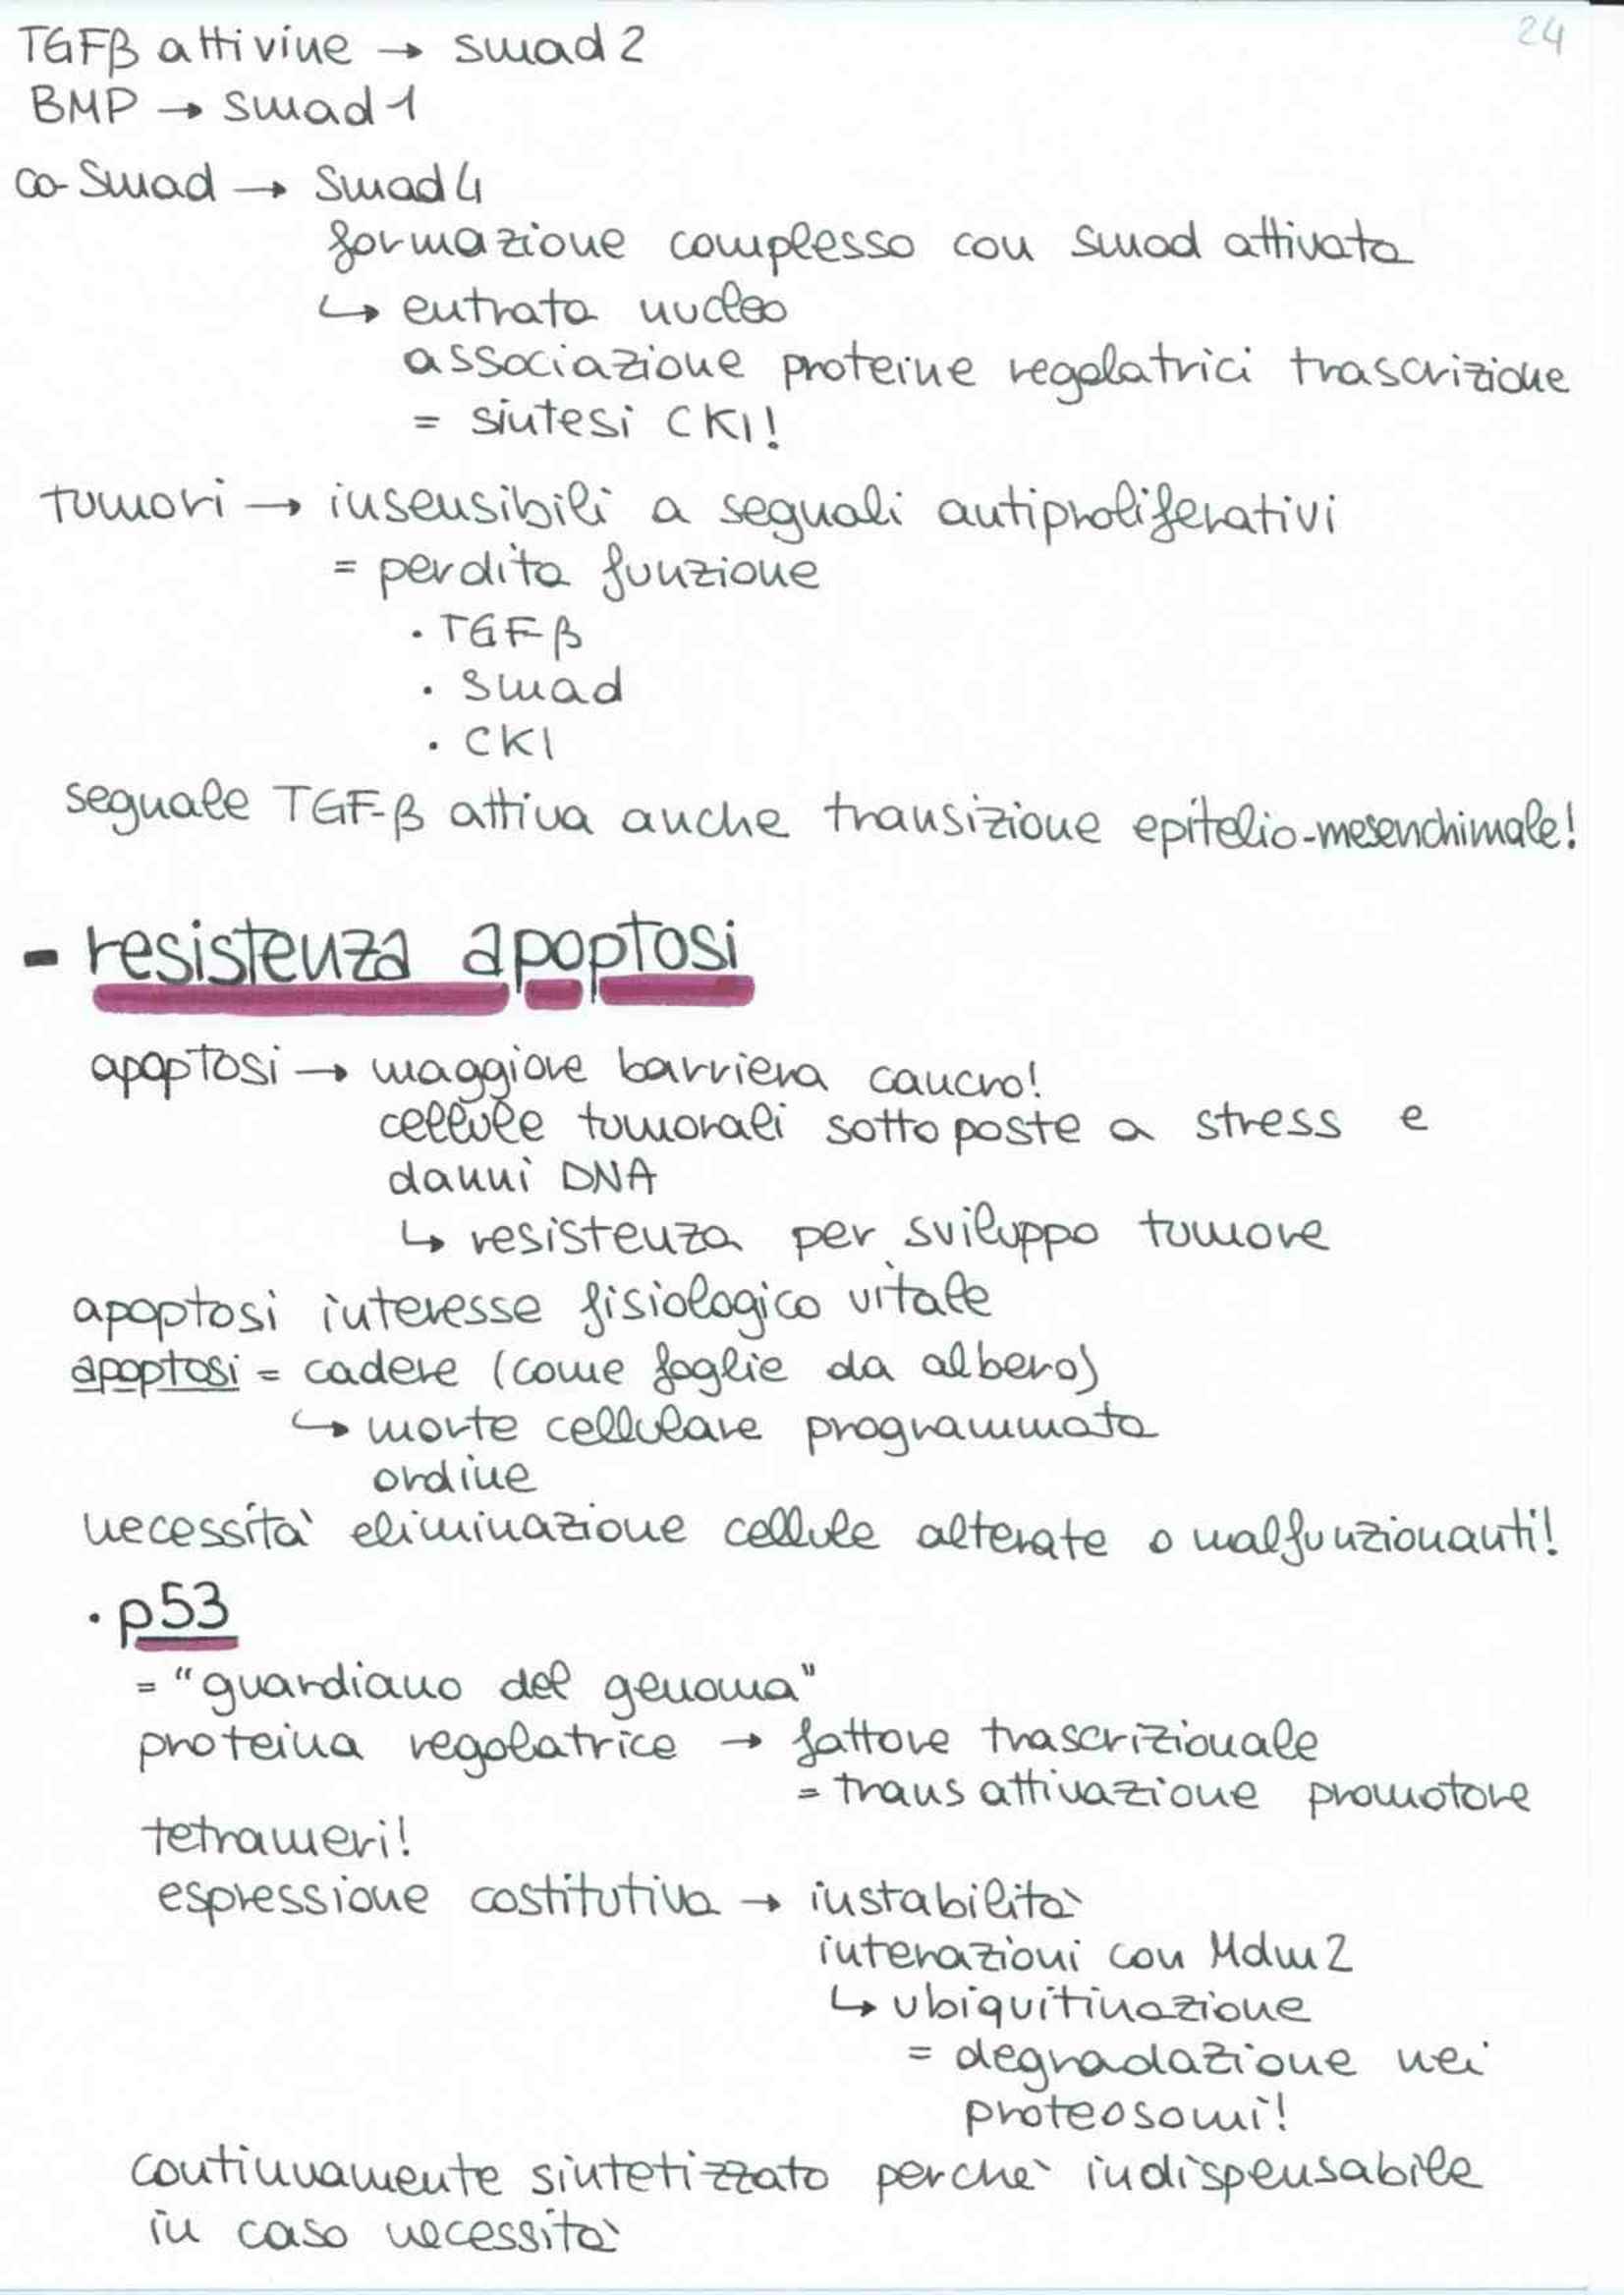 24
TGFβ attivine → smad 2
BMP → smad 1
co-Smad → Smad 4
formazione complesso con smad attivata
↳ entrata nucleo
associazione proteine regolatrici trascrizione
= sintesi CKI!
tumori → insensibili a segnali antiproliferativi
= perdita funzione
· TGFβ
· smad
· CKI
segnale TGF-β attiva anche transizione epitelio-mesenchimale!
- resistenza apoptosi
apoptosi → maggiore barriera cancro!
cellule tumorali sottoposte a stress e
danni DNA
↳ resistenza per sviluppo tumore
apoptosi interesse fisiologico vitale
apoptosi = cadere (come foglie da albero)
↳ morte cellulare programmata
ordine
necessità eliminazione cellule alterate o malfunzionanti!
· p53
= "guardiano del genoma"
proteina regolatrice → fattore trascrizionale
= trans attivazione promotore
tetrameri!
espressione costitutiva → instabilità
interazioni con Mdm2
↳ ubiquitinazione
= degradazione nei
proteosomi!
continuamente sintetizzato perchè indispensabile
in caso necessità